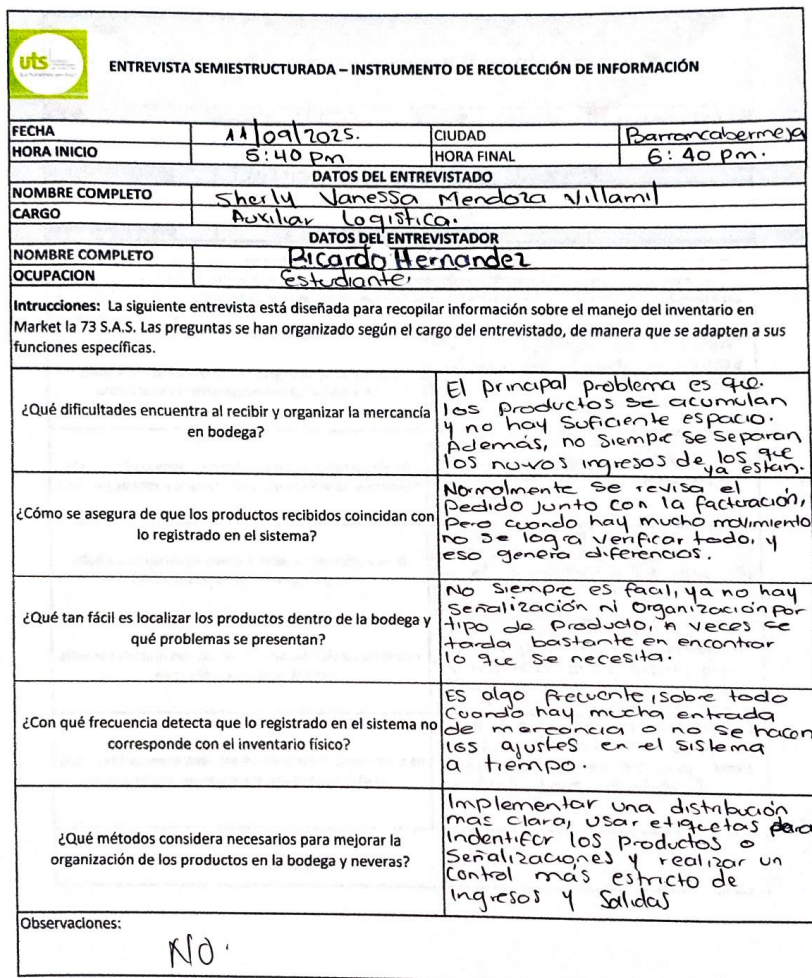 uts
ENTREVISTA SEMIESTRUCTURADA – INSTRUMENTO DE RECOLECCIÓN DE INFORMACIÓN
FECHA 11/09/2025. CIUDAD Barrancabermeja
HORA INICIO 5:40 pm HORA FINAL 6:40 pm.
DATOS DEL ENTREVISTADO
NOMBRE COMPLETO Sherly Vanessa Mendoza Villamil
CARGO Auxiliar Logistica.
DATOS DEL ENTREVISTADOR
NOMBRE COMPLETO Ricardo Hernandez
OCUPACION Estudiante,
Intrucciones: La siguiente entrevista está diseñada para recopilar información sobre el manejo del inventario en
Market la 73 S.A.S. Las preguntas se han organizado según el cargo del entrevistado, de manera que se adapten a sus
funciones específicas.
¿Qué dificultades encuentra al recibir y organizar la mercancía
en bodega?
El principal problema es que.
los productos se acumulan
y no hay suficiente espacio.
Además, no siempre se separan
los nuvos ingresos de los que
ya estan.
¿Cómo se asegura de que los productos recibidos coincidan con
lo registrado en el sistema?
Normalmente se revisa el
pedido junto con la facturación,
Pero cuando hay mucho movimiento
no se logra verificar todo, y
eso genera diferencias.
¿Qué tan fácil es localizar los productos dentro de la bodega y
qué problemas se presentan?
No siempre es facil, ya no hay
señalización ni organización por
tipo de producto, a veces se
tarda bastante en encontrar
lo que se necesita.
¿Con qué frecuencia detecta que lo registrado en el sistema no
corresponde con el inventario físico?
Es algo frecuente, sobre todo
cuando hay mucha entrada
de mercancia o no se hacen
los ajustes en el sistema
a tiempo.
¿Qué métodos considera necesarios para mejorar la
organización de los productos en la bodega y neveras?
Implementar una distribución
mas clara, usar etiquetas para
indentifcr los productos o
señalizaciones y realizar un
control más estricto de
ingresos y salidas
Observaciones:
NO.